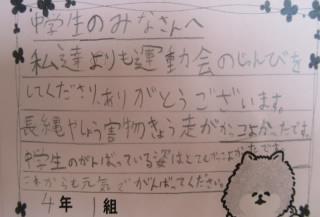 中学生のみなさんへ
私達よりも運動会のじゅんびを
してくださり、ありがとうございます。
長縄やしょう害物きょう走がかっこよかったです。
中学生のがんばっている姿はとてもかっこよかったです。
これからも元気でがんばってください。
4年 1組